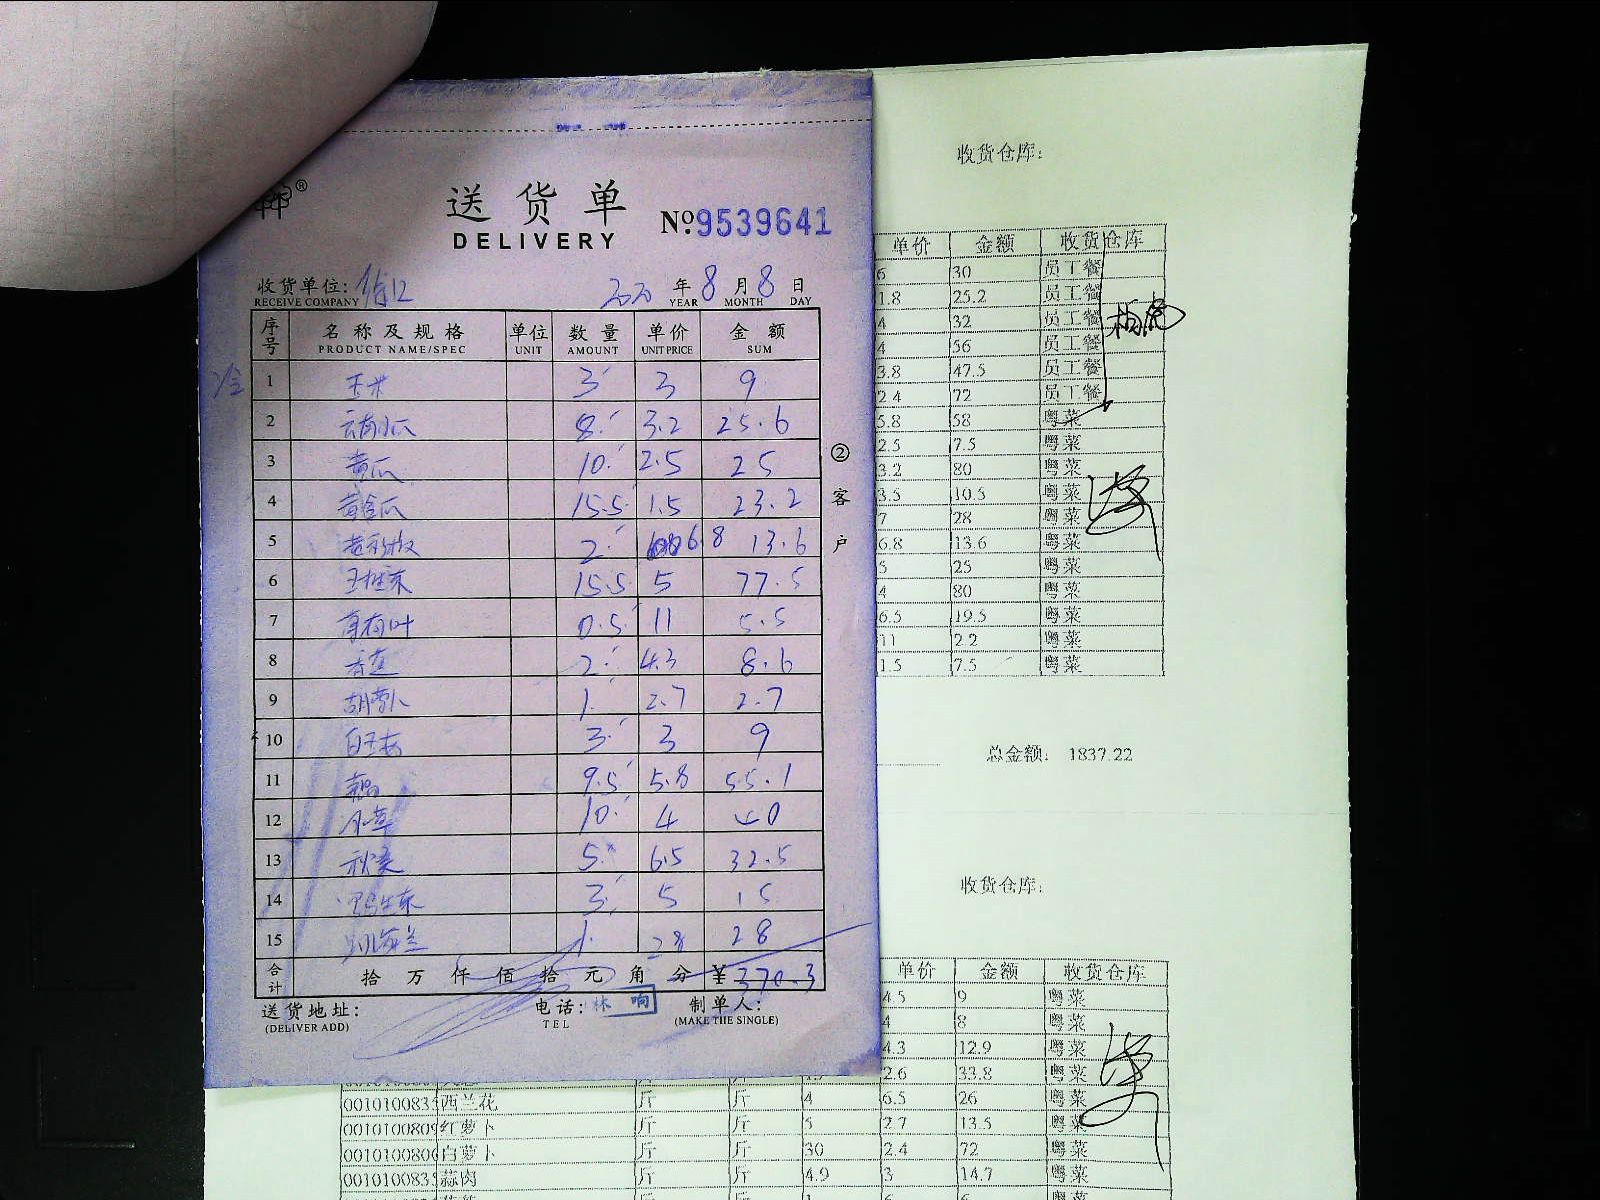 送货单
DELIVERY
№:9539641
收货单位:
RECEIVE COMPANY
2020 年 8 月 8 日
YEAR MONTH DAY
序号 名称及规格 单位 数量 单价 金额
PRODUCT NAME/SPEC UNIT AMOUNT UNIT PRICE SUM
1 玉米 3 3 9
2 云南小瓜 8 3.2 25.6
3 黄瓜 10 2.5 25
4 15.5 1.5 23.2
5 2 6.8 13.6
6 15.5 5 77.5
7 0.5 11 5.5
8 2 4.3 8.6
9 胡萝卜 1 2.7 2.7
10 3 3 9
11 9.5 5.8 55.1
12 10 4 40
13 秋葵 5 6.5 32.5
14 3 5 15
15 1 28 28
合计 拾 万 仟 佰 拾 元 角 分 ¥370.3
送货地址:
(DELIVER ADD)
电话:
TEL
林 响
制单人:
(MAKE THE SINGLE)
②客户
收货仓库:
单价 金额 收货仓库
6 30 员工餐
1.8 25.2 员工餐
4 32 员工餐
4 56 员工餐
3.8 47.5 员工餐
2.4 72 员工餐
5.8 58 粤菜
2.5 7.5 粤菜
3.2 80 粤菜
3.5 10.5 粤菜
7 28 粤菜
6.8 13.6 粤菜
5 25 粤菜
4 80 粤菜
6.5 19.5 粤菜
11 2.2 粤菜
1.5 7.5 粤菜
总金额: 1837.22
收货仓库:
单价 金额 收货仓库
4.5 9 粤菜
4 8 粤菜
4.3 12.9 粤菜
2.6 33.8 粤菜
001010083 西兰花 斤 斤 4 6.5 26 粤菜
001010080 红萝卜 斤 斤 5 2.7 13.5 粤菜
001010080 白萝卜 斤 斤 30 2.4 72 粤菜
001010083 蒜肉 斤 斤 4.9 3 14.7 粤菜